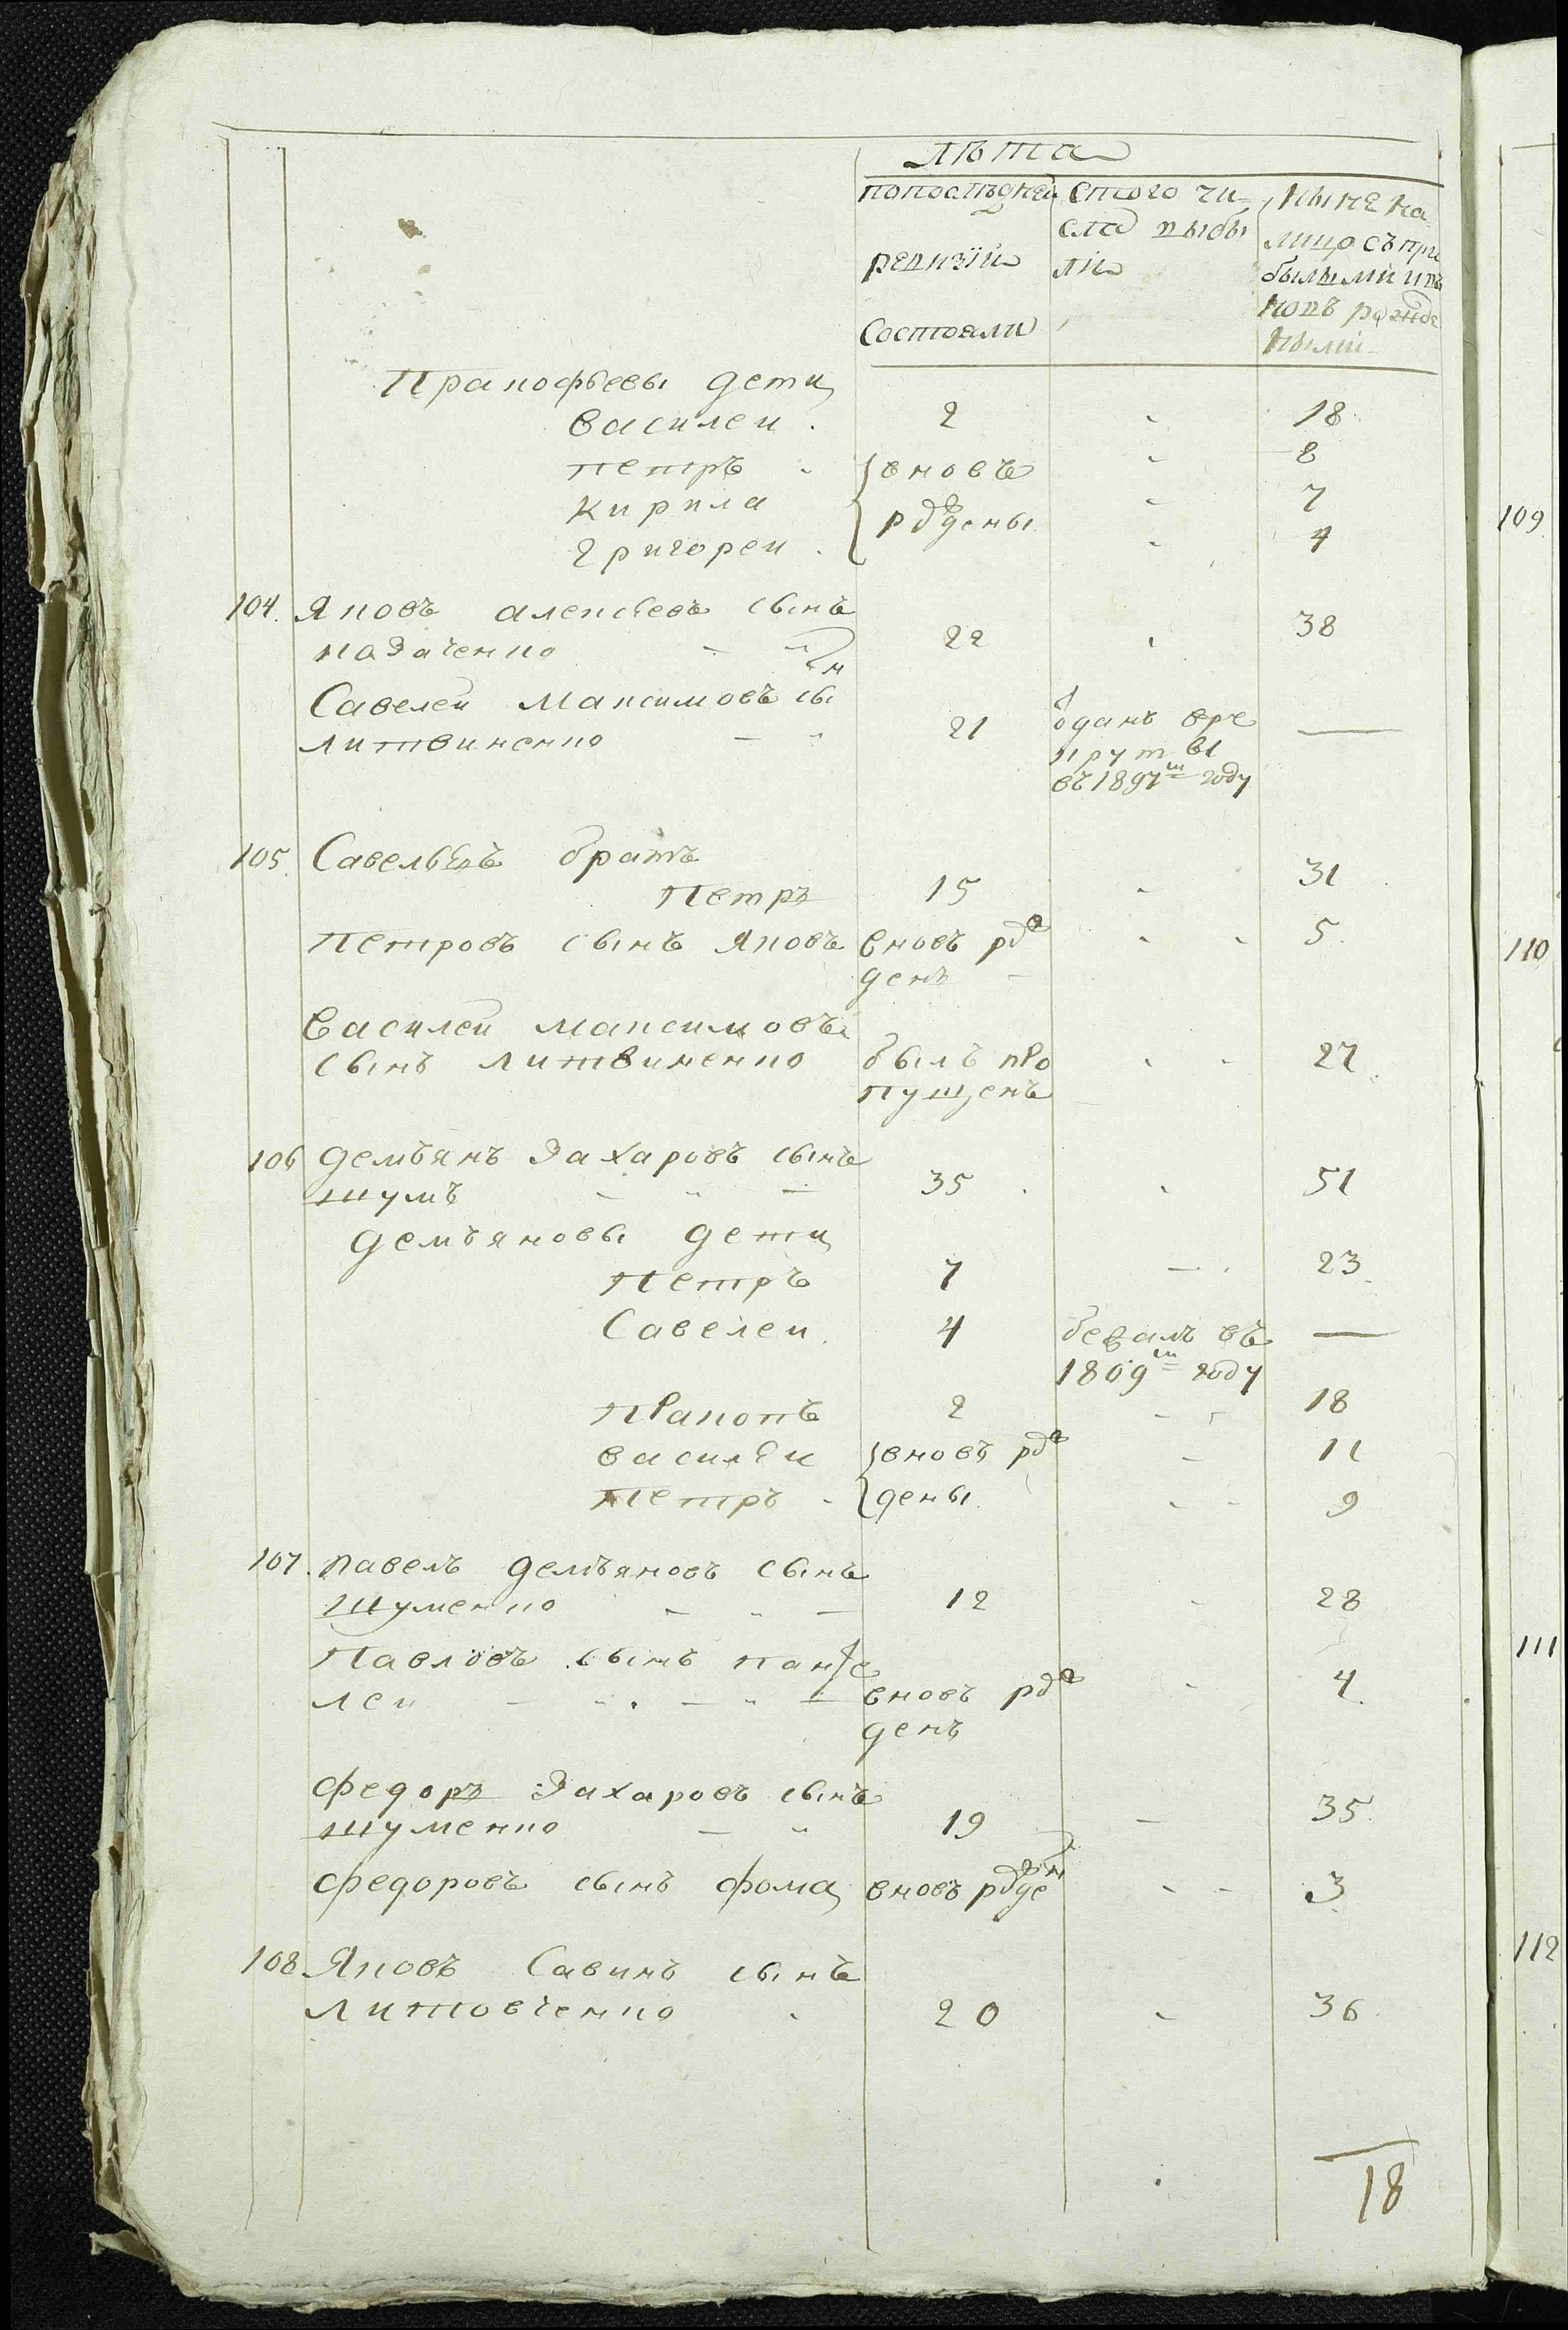 лѣта
попослѣдней стого чи= ныне на
ревизіи сла выбы лицо съпри
Состояли ли былыми ипъ
новъ рожде
ными
Пракофьевы дети
василеи 2 18
петръ вновь 8
кирила рожdены 7
григореи 4
104. Яковъ алексѣевъ сынъ
казаченко 22 38
Савелеи Максимовъ сын
литвиненко 21 отданъ вре —
круты
въ 1807м году
105. Савельевъ братъ
Петръ 15 31
Петровъ сынъ Яковъ вновь рож 5
денъ
Василеи максимовъ
сынъ литвиненко былъ про 27
пущенъ
106 демъянъ Захаровъ сынъ
шумъ 35 51
демъяновы дети
Петръ 7 23
Савелеи 4 бежалъ въ —
1809м году
Пракопъ 2 18
василеи вновь рож 11
петръ дены 9
107. павелъ демъяновъ сынъ
шуменко 12 28
Павловъ сынъ панте
леи вновь рож 4
денъ
Федоръ Захаровъ сынъ
шуменко 19 35
Федоровъ сынъ фома вновь рожден 3
108 Яковъ Савинъ сынъ
литовченко 20 36
18
109
110
111
112